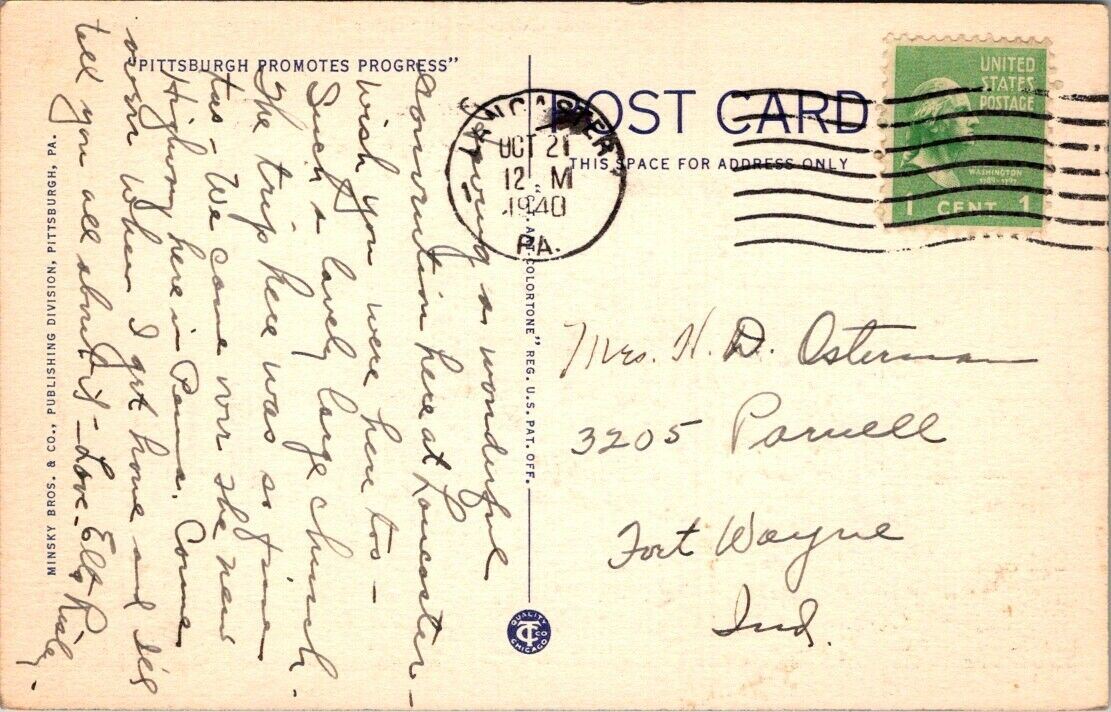 "PITTSBURGH PROMOTES PROGRESS"
POST CARD
THIS SPACE FOR ADDRESS ONLY
UNITED
STATES
POSTAGE
WASHINGTON
1789-1797
1 CENT 1
LANCASTER
OCT 21
12 M
1940
PA.
Having a wonderful
convention here at Lancaster -
Wish you were here too -
Such a lovely large church.
The trip here was so fine
too - We came over the new
Highway here in Penna. Come
over when I get home and I'll
tell you all about it - Love -
Mrs. H. D. Osterman
3205 Parnell
Fort Wayne
Ind.
MINSKY BROS. & CO., PUBLISHING DIVISION, PITTSBURGH, PA.
COLORTONE" REG. U.S. PAT. OFF.
QUALITY
CT CO
CHICAGO